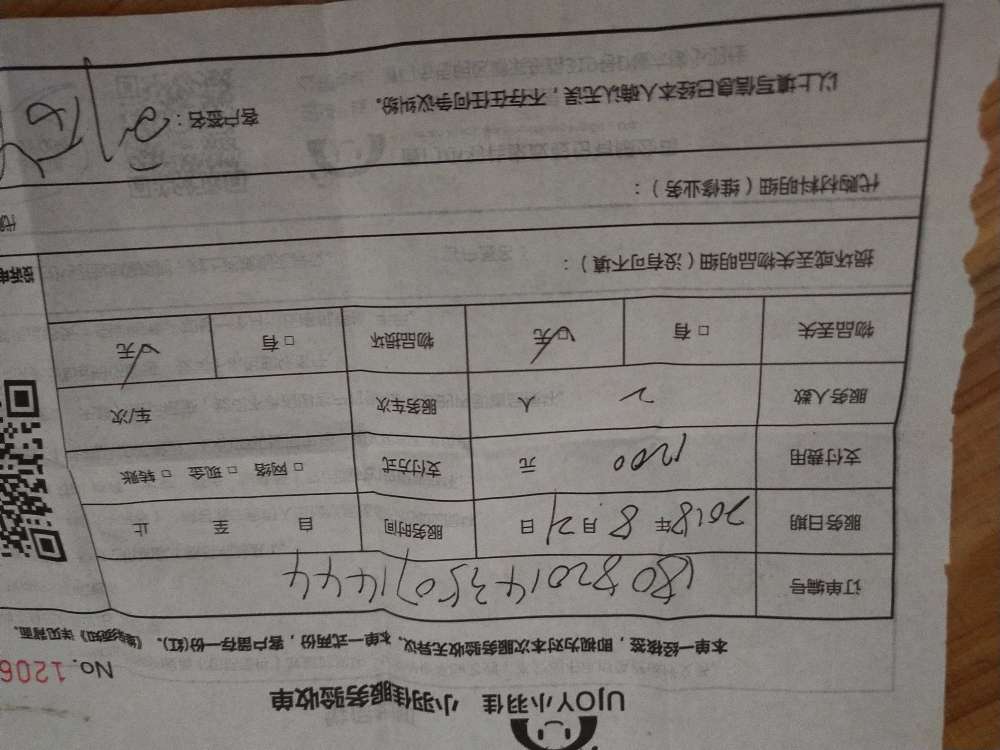 UJOY小羽佳 小羽佳服务验收单
No. 1206
本单一经核签，即视为对本次服务验收无异议。本单一式两份，客户留存一份(红)。《 须知》详见背面。
订单编号 1808201435071444
服务日期 2018年 8 月 21 日 服务时间 自 至 止
支付费用 1200 元 支付方式 □ 网络 □ 现金 □ 转账
服务人数 2 人 服务车次 车/次
物品丢失 □ 有 ☑ 无 物品损坏 □ 有 ☑ 无
损坏或丢失物品明细（没有可不填）：
投诉电
代购材料明细（维修业务）：
以上填写信息已经本人确认无误，不存在任何争议纠纷。 客户签名：